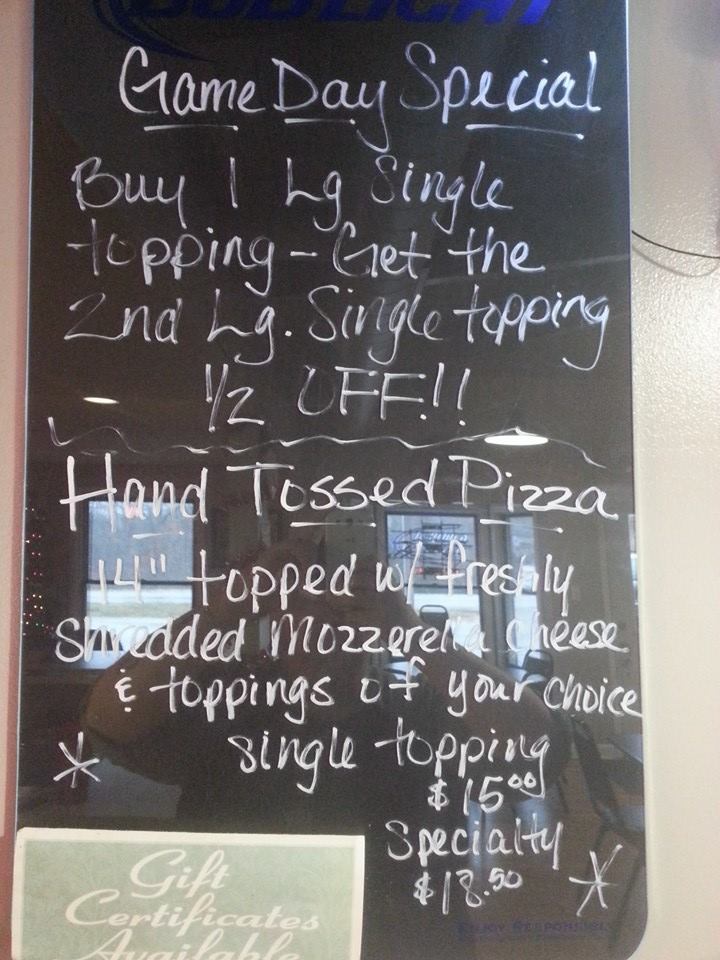 BUD LIGHT
Game Day Special
Buy 1 Lg Single
topping - Get the
2nd Lg. Single topping
1/2 OFF!!
Hand Tossed Pizza
14" topped w/ freshly
Shredded Mozzerella Cheese
& toppings of your choice
* single topping
$15.00
Specialty
$18.50 *
Gift
Certificates
Available
ENJOY RESPONSIBLY